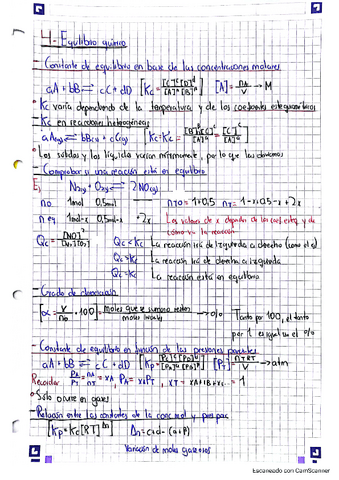 4- Equilibrio químico
Constante de equilibrio en base de las concentraciones molares
aA + bB ⇌ cC + dD [Kc = [C]^c [D]^d / [A]^a [B]^b] [A] = nA / V → M
Kc varía dependiendo de la temperatura y de los coeficientes estequiométricos
Kc en reacciones heterogéneas
Los sólidos y los líquidos varían mínimamente, por lo que los
Comprobar si una reacción está en equilibrio
Ej N2(g) + O2(g) ⇌ 2NO(g)
no 1mol 0,5mol nTO = 1+0,5 nT = 1-x+0,5-x+2x
n eq 1mol-x 0,5mol-x 2x Los valores de x dependen de los coef esteq y de
como va la reacción
Qc = [NO]^2 / [N2][O2] Qc < Kc La reacción irá de izquierda a derecha
Qc > Kc La reacción irá de derecha a izquierda
Qc = Kc La reacción está en equilibrio
Grado de disociación
[α = x / no · 100] = moles / moles iniciales → % Tanto por 100, el tanto
por 1 es igual sin el %
Constante de equilibrio en función de las presiones parciales
aA + bB ⇌ cC + dD [Kp = [Pc]^c [PD]^d / [PA]^a [PB]^b] → atm
Recordar PA / PT = nA / nT = XA, PA = XA PT, XT = XA + XB + XC... = 1
Solo ocurre en gases
Relación entre las constantes de la conc mol y pres parc
[Kp = Kc [RT]^Δn] Δn = c+d - (a+b)
Variación de moles gaseosos
Escaneado con CamScanner